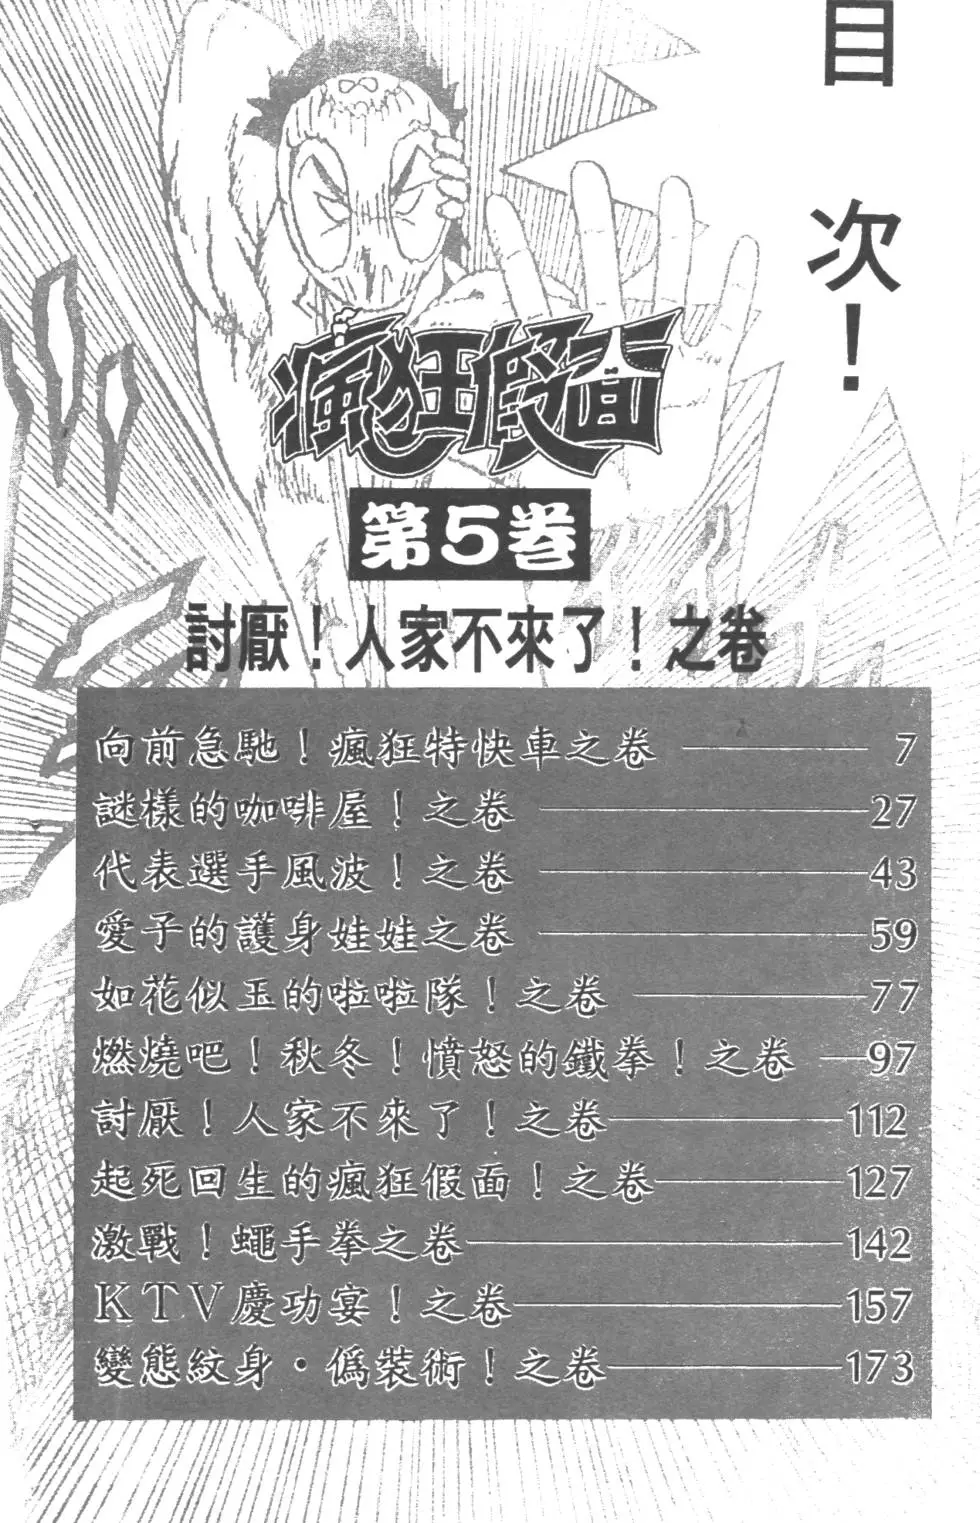 目次！
瘋狂假面
第5巻
討厭！人家不來了！之卷
向前急馳！瘋狂特快車之卷 7
謎樣的咖啡屋！之卷 27
代表選手風波！之卷 43
愛子的護身娃娃之卷 59
如花似玉的啦啦隊！之卷 77
燃燒吧！秋冬！憤怒的鐵拳！之卷 97
討厭！人家不來了！之卷 112
起死回生的瘋狂假面！之卷 127
激戰！蠅手拳之卷 142
KTV慶功宴！之卷 157
變態紋身・偽裝術！之卷 173